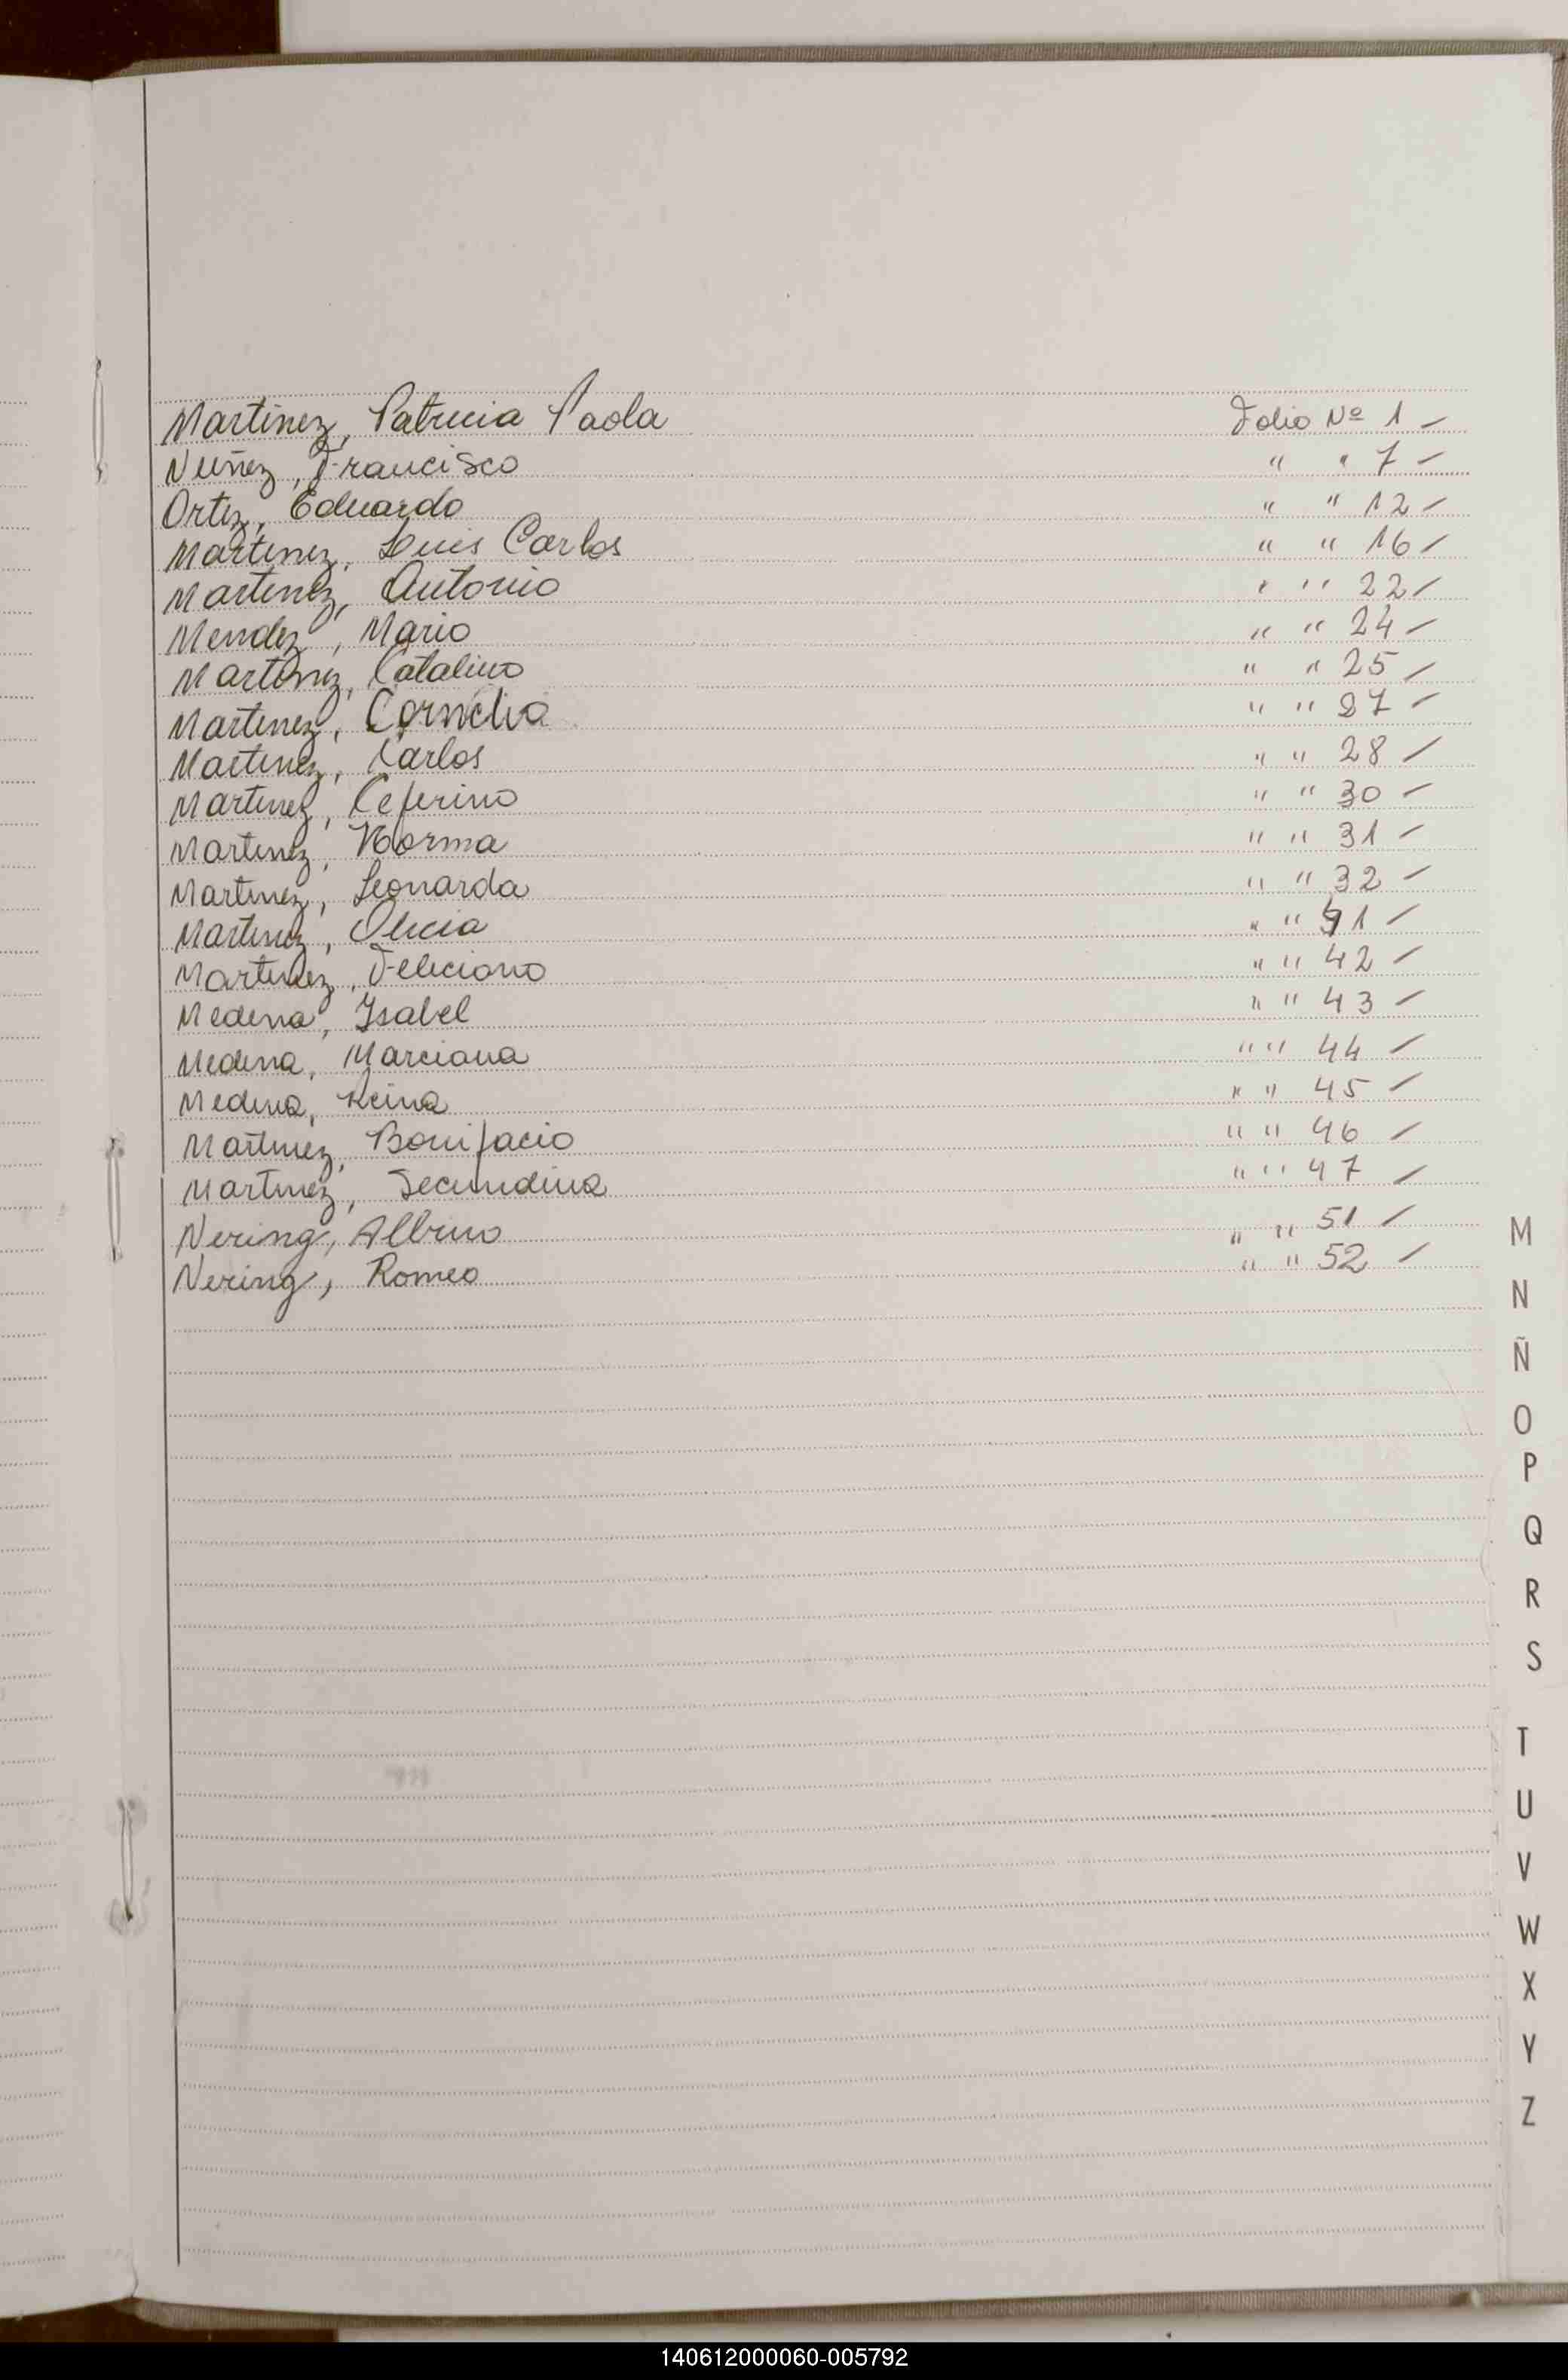 Martinez, Patricia Paola Folio Nº 1 -
Nuñez, Francisco " " 7 -
Ortiz, Eduardo " " 12 -
Martinez, Luis Carlos " " 16 -
Martinez, Antonio " " 22 -
Mendez, Mario " " 24 -
Martinez, Catalino " " 25 -
Martinez, Cornelia " " 27 -
Martinez, Carlos " " 28 -
Martinez, Ceferino " " 30 -
Martinez, Norma " " 31 -
Martinez, Leonarda " " 32 -
Martinez, Alicia " " 41 -
Martinez, Feliciano " " 42 -
Medina, Isabel " " 43 -
Medina, Marciana " " 44 -
Medina, Reina " " 45 -
Martinez, Bonifacio " " 46 -
Martinez, Secundina " " 47 -
Nering, Albino " " 51 -
Nering, Romeo " " 52 -
M
N
Ñ
O
P
Q
R
S
T
U
V
W
X
Y
Z
140612000060-005792